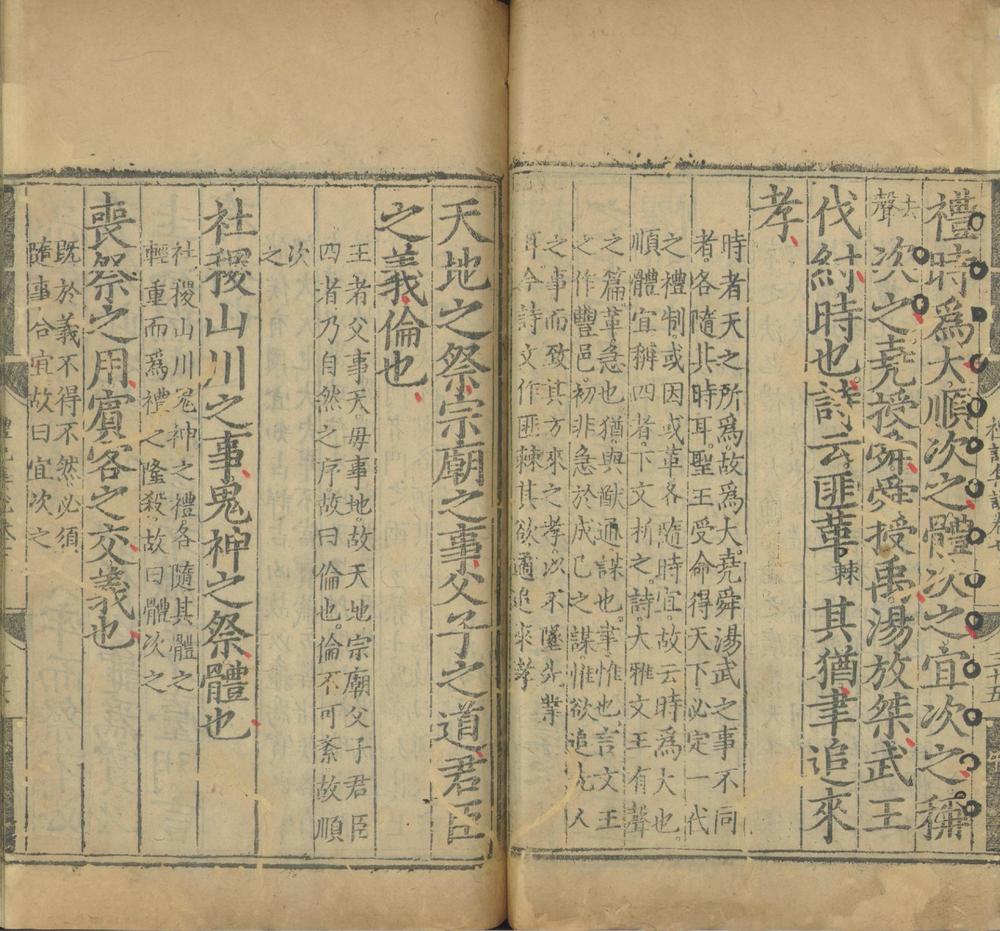 禮時爲大順次之體次之宜次之稱
去聲次之堯授舜舜授禹湯放桀武王
伐紂時也詩云匪革棘其猶聿追來
孝
時者天之所爲故爲大堯舜湯武之事不同
者各隨其時耳聖王受命得天下必定一代
之禮制或因或革各隨時宜故云時爲大也
順體宜稱四者下文析之詩大雅文王有聲
之篇革急也猶與猷通謀也聿惟也言文王
之作豐邑初非急於成己之謀惟欲追先人
之事而致其方來之孝以不墜先業
耳今詩文作匪棘其欲遹追來孝
天地之祭宗廟之事父子之道君臣
之義倫也
王者父事天母事地故天地宗廟父子君臣
四者乃自然之序故曰倫也倫不可紊故順
次之
社稷山川之事鬼神之祭體也
社稷山川鬼神之禮各隨其體之
輕重而爲禮之隆殺故曰體次之
喪祭之用賓客之交義也
既於義不得不然必須
隨事合宜故曰宜次之